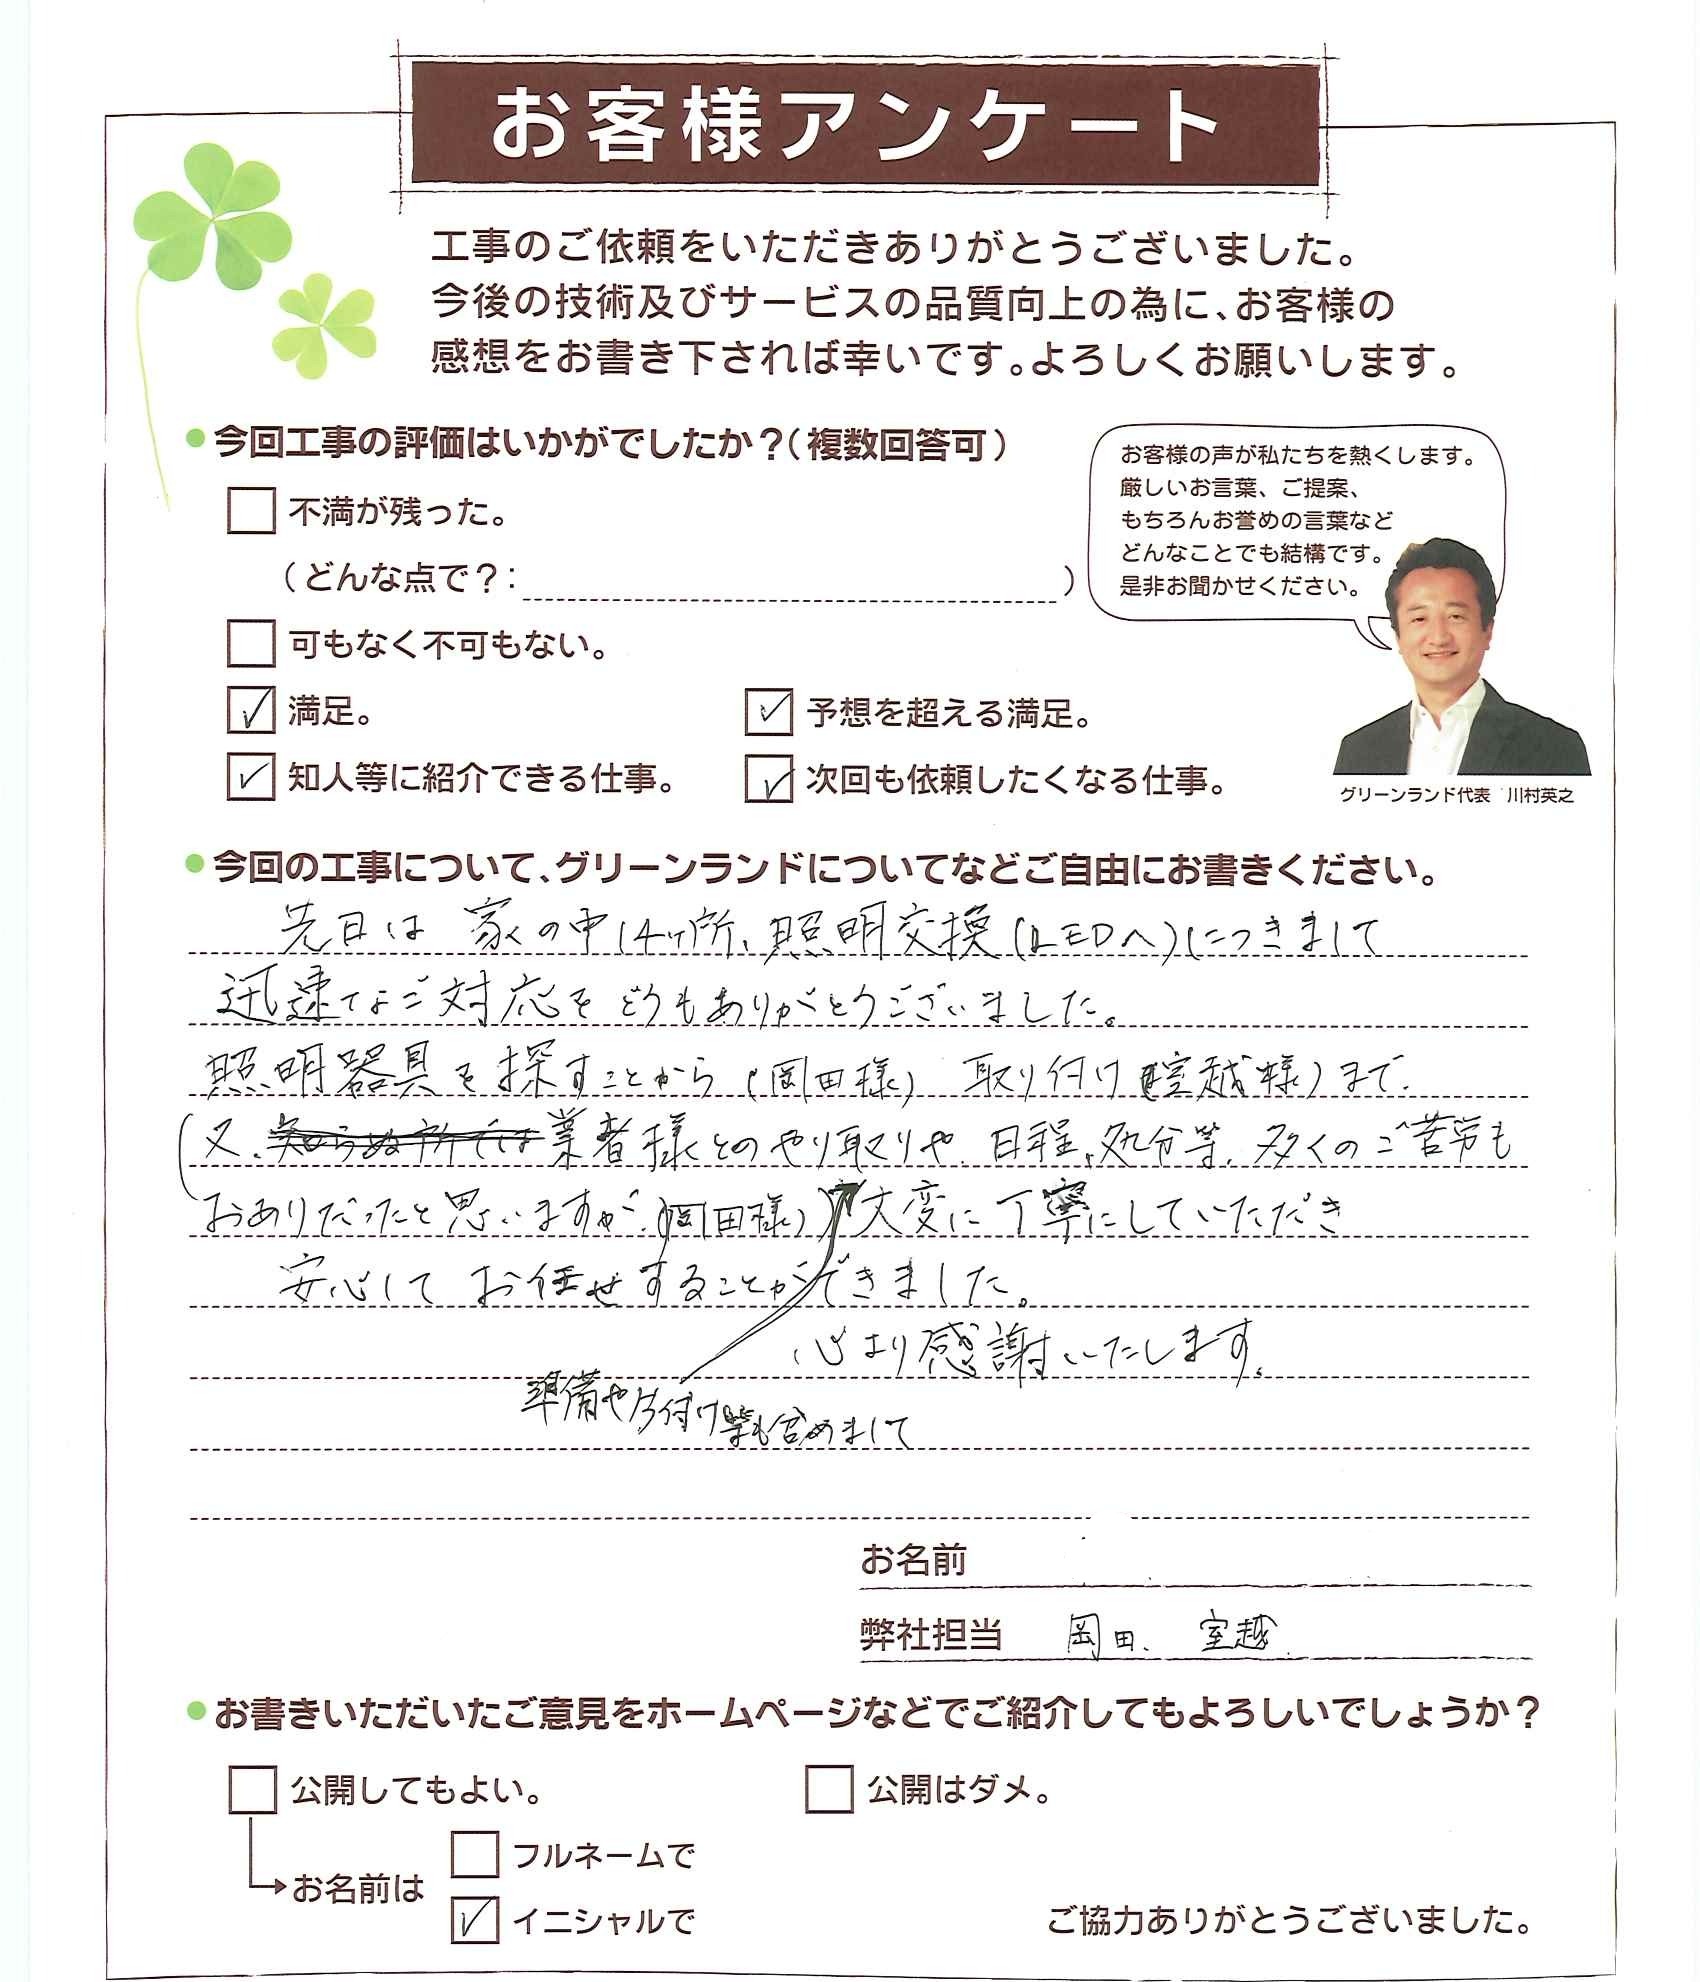 お客様アンケート
工事のご依頼をいただきありがとうございました。
今後の技術及びサービスの品質向上の為に、お客様の
感想をお書き下されば幸いです。よろしくお願いします。
今回工事の評価はいかがでしたか？（複数回答可）
不満が残った。
（どんな点で？：　）
可もなく不可もない。
満足。
予想を超える満足。
知人等に紹介できる仕事。
次回も依頼したくなる仕事。
お客様の声が私たちを熱くします。
厳しいお言葉、ご提案、
もちろんお誉めの言葉など
どんなことでも結構です。
是非お聞かせください。
グリーンランド代表　川村英之
今回の工事について、グリーンランドについてなどご自由にお書きください。
先日は 家の中 14ヶ所、照明交換（LEDへ）につきまして
迅速なご対応を どうもありがとうございました。
照明器具を探すことから（岡田様） 取り付け（室越様）まで、
（又、業者様とのやり取りや、日程、処分等、多くのご苦労も
おありだったと思いますが、（岡田様）） 大変に丁寧にしていただき
安心して お任せすることができました。
心より感謝いたします。
準備や片付け等も含めまして
お名前
弊社担当　岡田、室越
お書きいただいたご意見をホームページなどでご紹介してもよろしいでしょうか？
公開してもよい。
公開はダメ。
お名前は
フルネームで
イニシャルで
ご協力ありがとうございました。